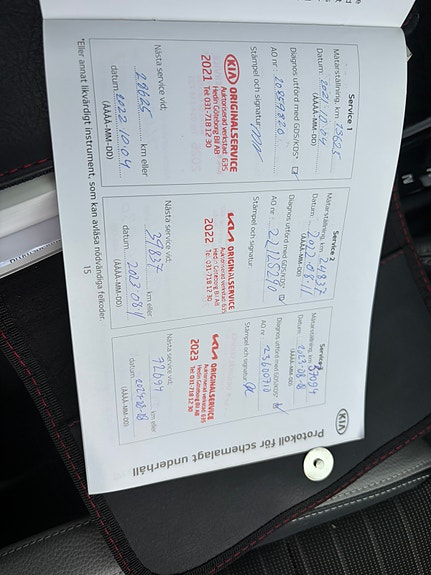 Protokoll för schemalagt underhåll
KIA
Service 1
Mätarställning, km 13625
Datum: 2021.10.04
(ÅÅÅÅ-MM-DD)
Diagnos utförd med GDS/KDS*
AO nr: 20859820
Stämpel och signatur
KIA ORIGINALSERVICE
Auktoriserad verkstad 635
Hedin Göteborg Bil AB
Tel: 031-718 12 30
2021
Nästa service vid;
28625 km eller
datum: 2022.10.04
(ÅÅÅÅ-MM-DD)
Service 2
Mätarställning, km 24837
Datum: 2022-08-11
(ÅÅÅÅ-MM-DD)
Diagnos utförd med GDS/KDS*
AO nr: 22125290
Stämpel och signatur
KIA ORIGINALSERVICE
Auktoriserad verkstad 635
Hedin Göteborg Bil AB
Tel: 031-718 12 30
2022
Nästa service vid;
39837 km eller
datum: 2023 08 11
(ÅÅÅÅ-MM-DD)
Service 3
Mätarställning, km 57094
Datum:
(ÅÅÅÅ-MM-DD)
Diagnos utförd med GDS/KDS*
AO nr: 23630710
Stämpel och signatur
KIA ORIGINALSERVICE
Auktoriserad verkstad 635
Hedin Göteborg Bil AB
Tel: 031-718 12 30
2023
Nästa service vid;
72094 km eller
datum:
(ÅÅÅÅ-MM-DD)
*Eller annat likvärdigt instrument, som kan avläsa nödvändiga felkoder.
15